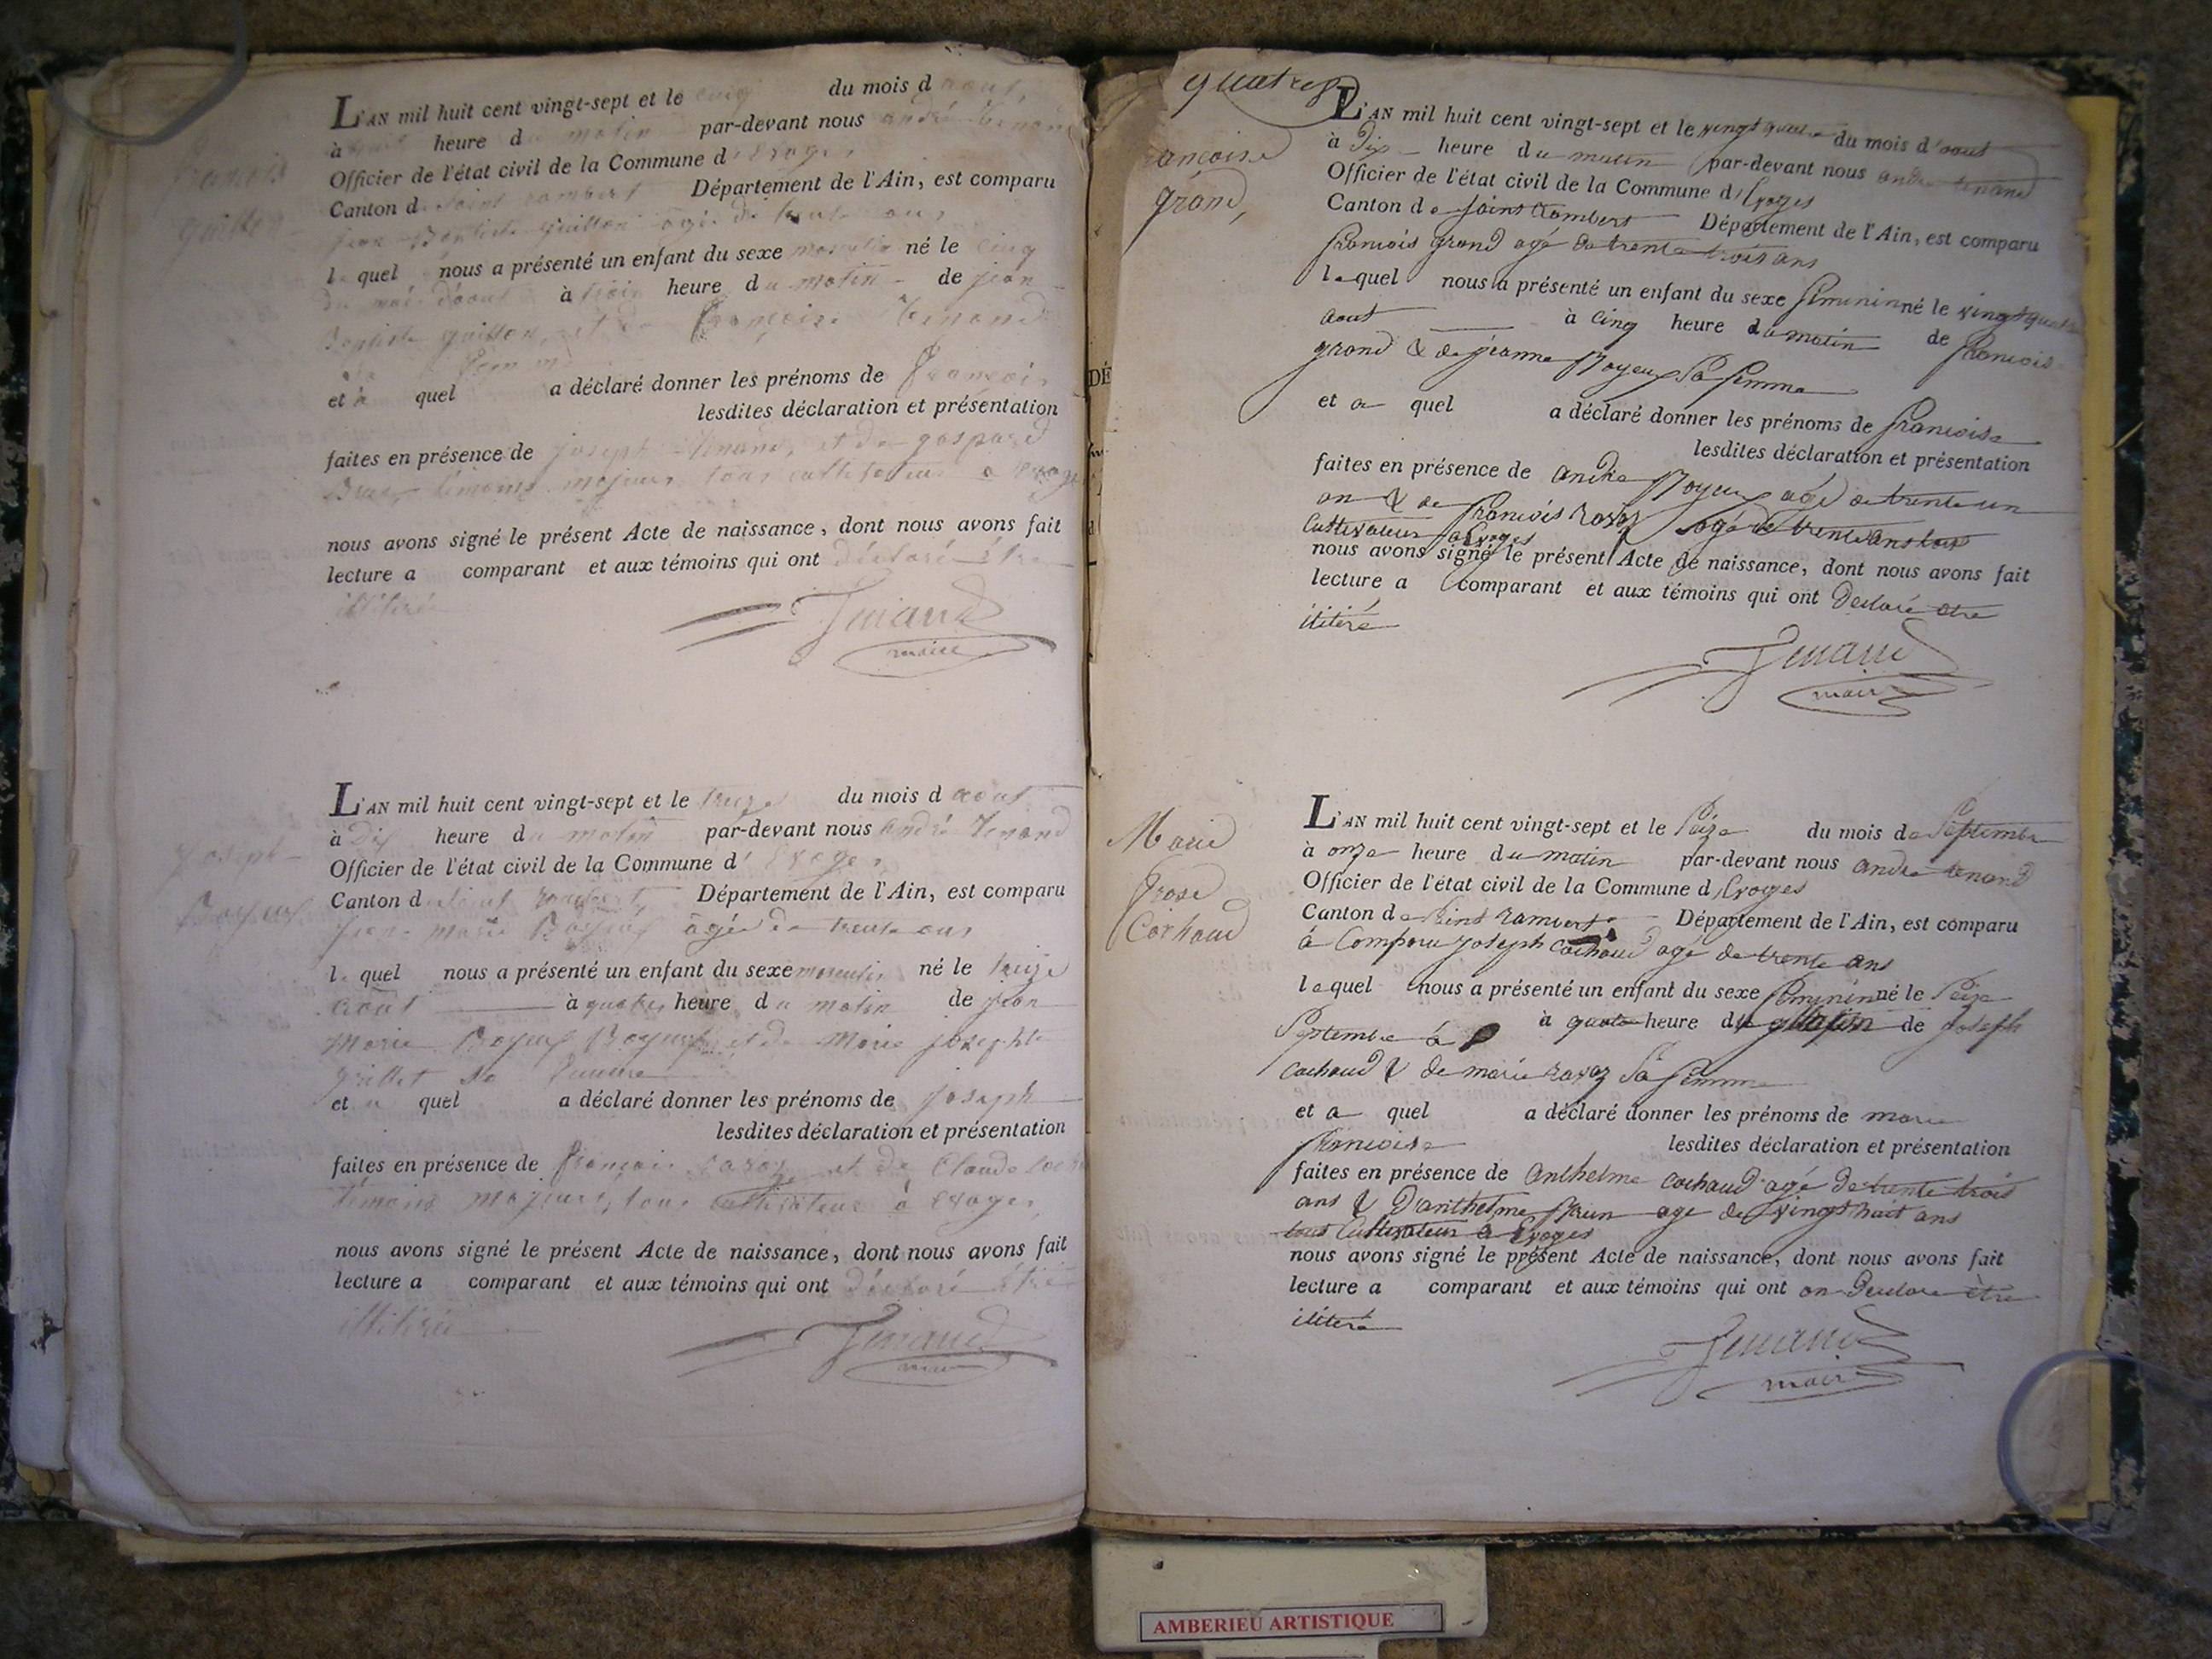 L'AN mil huit cent vingt-sept et le cinq du mois d aout
à heure du matin par-devant nous andré tenand
Officier de l'état civil de la Commune d'Evoges
Canton de Saint rambert Département de l'Ain, est comparu
jean Baptiste guillon agé de ans
le quel nous a présenté un enfant du sexe masculin né le cinq
du mois d'aout à trois heure du matin de jean
Baptiste guillon et de françoise tenand
et a quel a déclaré donner les prénoms de françois
lesdites déclaration et présentation
faites en présence de joseph tenand et de gaspard
témoins majeurs tous cultivateurs a evoges
nous avons signé le présent Acte de naissance, dont nous avons fait
lecture a comparant et aux témoins qui ont déclaré être
illitéré
Tenand
maire
françois
guillon
L'AN mil huit cent vingt-sept et le treize du mois d aout
à Dix heure du matin par-devant nous andré tenand
Officier de l'état civil de la Commune d' Evoges
Canton de saint rambert Département de l'Ain, est comparu
jean marie agé de trente ans
le quel nous a présenté un enfant du sexe masculin né le treize
aout à quatre heure du matin de jean
Marie et de Marie josephte
grillet sa femme
et a quel a déclaré donner les prénoms de joseph
lesdites déclaration et présentation
faites en présence de françois ravoz et de Claude
témoins majeurs, tous cultivateurs à Evoges
nous avons signé le présent Acte de naissance, dont nous avons fait
lecture a comparant et aux témoins qui ont déclaré être
illitéré
Tenand
maire
joseph
quatre
L'AN mil huit cent vingt-sept et le vingt quatre du mois d'aout
à Dix heure du matin par-devant nous andre tenand
Officier de l'état civil de la Commune d'Evoges
Canton de saint Rambert Département de l'Ain, est comparu
francois grand agé de trente trois ans
le quel nous a présenté un enfant du sexe feminin né le vingt quatre
aout à cinq heure du matin de francois
grand & de jeanne sa femme
et a quel a déclaré donner les prénoms de francoise
lesdites déclaration et présentation
faites en présence de andre agé de trente un
an & de francois ravoz agé de trente ans tous
Cultivateur a Evoges
nous avons signé le présent Acte de naissance, dont nous avons fait
lecture a comparant et aux témoins qui ont Declaré etre
ilitéré
Tenand
maire
ancoise
grand,
L'AN mil huit cent vingt-sept et le seize du mois de Septembre
à onze heure du matin par-devant nous andre tenand
Officier de l'état civil de la Commune d Evoges
Canton de Saint rambert Département de l'Ain, est comparu
à Comparu joseph cochaud agé de trente ans
le quel nous a présenté un enfant du sexe feminin né le seize
Septembre à à quatre heure du matin de joseph
cochaud & de marie ravoz sa femme
et a quel a déclaré donner les prénoms de marie
francoise lesdites déclaration et présentation
faites en présence de anthelme cochaud agé de trente trois
ans & D'anthelme agé de vingt huit ans
tous Cultivateur a Evoges
nous avons signé le présent Acte de naissance, dont nous avons fait
lecture a comparant et aux témoins qui ont on Declare être
ilitéré
Tenand
maire
Marie
Cochaud
AMBERIEU ARTISTIQUE